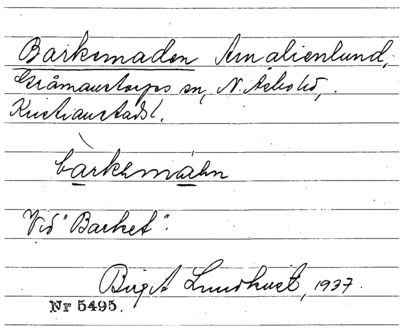 Barkemaden Amalienlund,
Gråmanstorps sn, N. Åsbo hd,
Kristianstads l.
bàrkemáen
Vid "Barket".
Birgit Lundkvist, 1937.
Nr 5495.